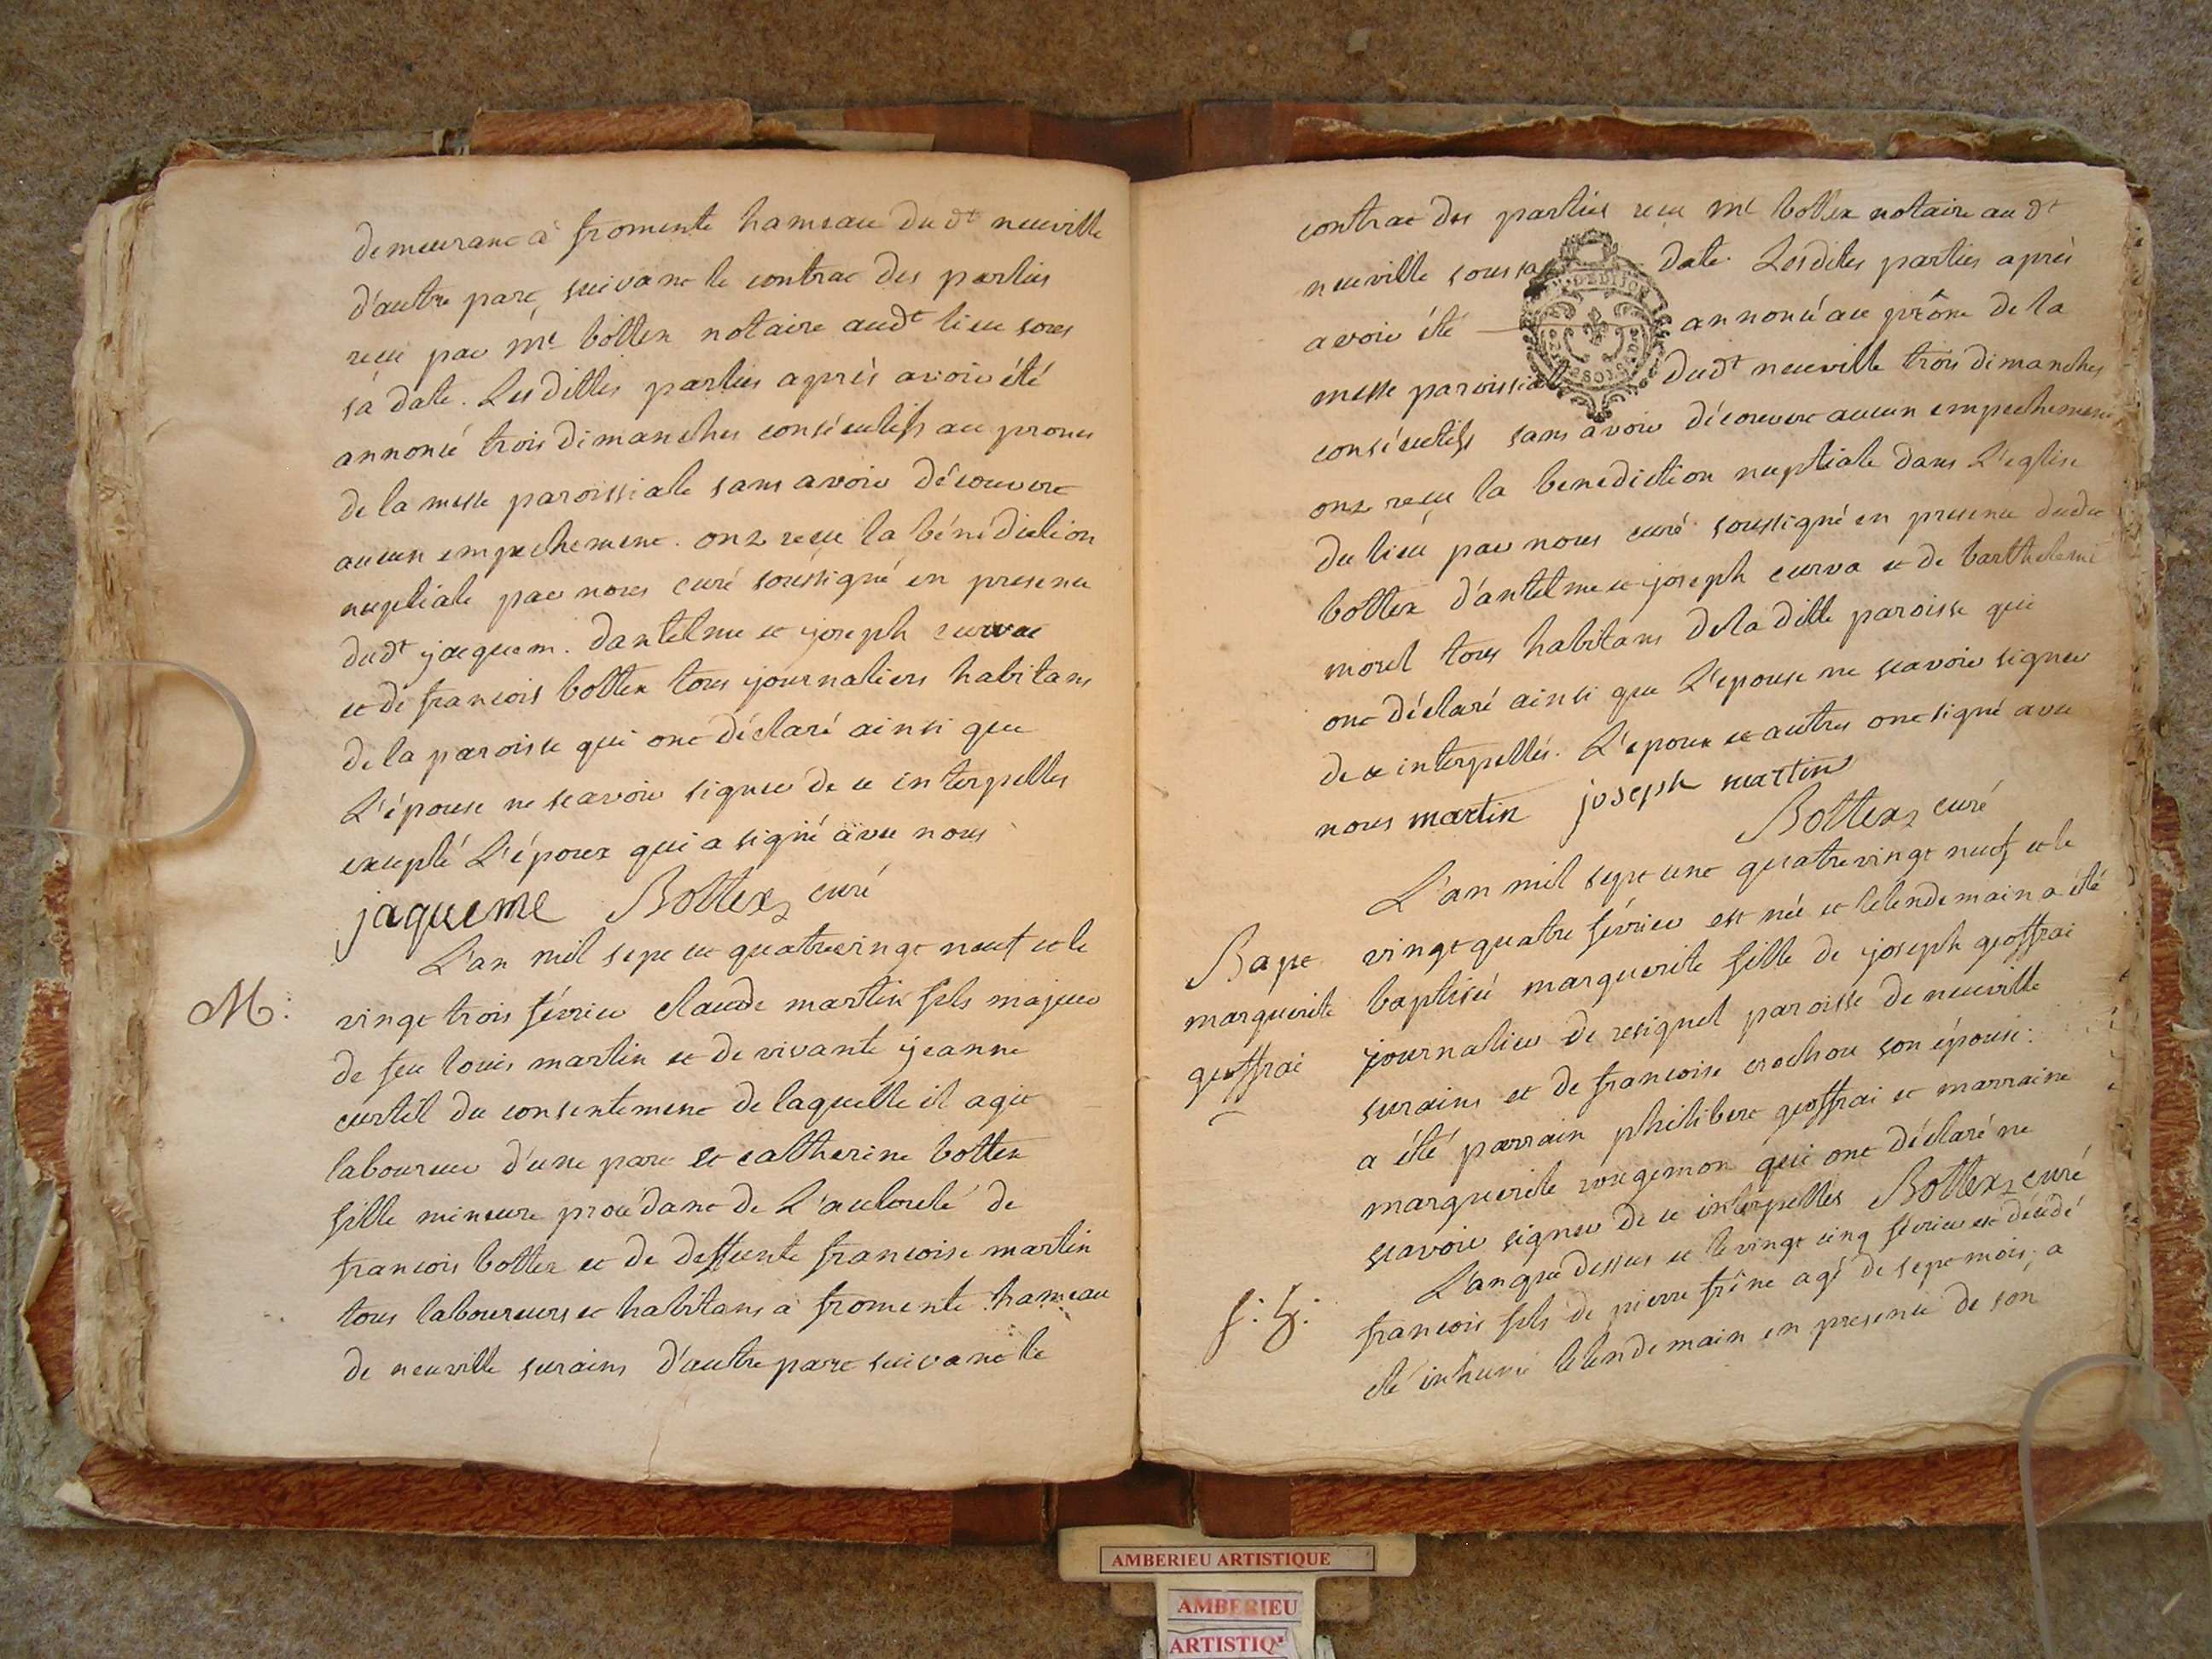 demeurant à fromente hameau dudt neuville
d'autre part, suivant le contrac des parties
reçu par Me bottex notaire audt lieu sous
sa date. Lesdittes parties après avoir été
annoncé trois dimanches consécutifs au prones
de la messe paroissiale sans avoir découvert
aucun empechement. ont reçu la bénédiction
nuptiale par nous curé soussigné en presence
dudt jaquem. dantelme et joseph curva
et de francois bottex tous journaliers habitans
de la paroisse qui ont déclaré ainsi que
L'épouse ne scavoir signer de ce interpellés
excepté L'époux qui a signé avec nous
jaqueme Bottex curé
L'an mil sept ct quatrevingt neuf et le
M: vingt trois février claude martin fils majeur
de feu louis martin et de vivante jeanne
curtil du consentement de laquelle il agit
laboureur d'une part et catherine bottex
fille mineure procédant de L'autorité de
francois bottex et de deffunte francoise martin
tous laboureurs et habitans à fromente hameau
de neuville surains d'autre part suivant le
contrac des parties reçu Me bottex notaire audt
neuville sous sa date. Lesdites parties après
avoir été annoncé au prône de la
messe paroissiale dudt neuville trois dimanches
consécutifs sans avoir découvert aucun empechement
ont reçu la benediction nuptiale dans L'eglise
du lieu par nous curé soussigné en presence dudit
bottex d'antelme et joseph curva et de barthelemi
morel tous habitans de la ditte paroisse qui
ont déclaré ainsi que L'epouse ne scavoir signer
de ce interpellés. L'epoux et autres ont signé avec
nous martin joseph martin
Bottex curé
L'an mil sept cent quatrevingt neuf et le
Bapt. vingt quatre février est née et lelendemain a été
marguerite baptisée marguerite fille de joseph geoffrai
geoffrai journalier de resignel paroisse de neuville
surains et de francoise crochon son épouse:
a été parrain philibert geoffrai et marraine
marguerite rougemon qui ont déclaré ne
scavoir signer de ce interpellés Bottex curé
L'an que dessus et le vingt cinq février est décédé
francois fils de pierre frêne agé de sept mois; a
été inhumé lelendemain en presence de son
AMBERIEU ARTISTIQUE
AMBERIEU
ARTISTIQ